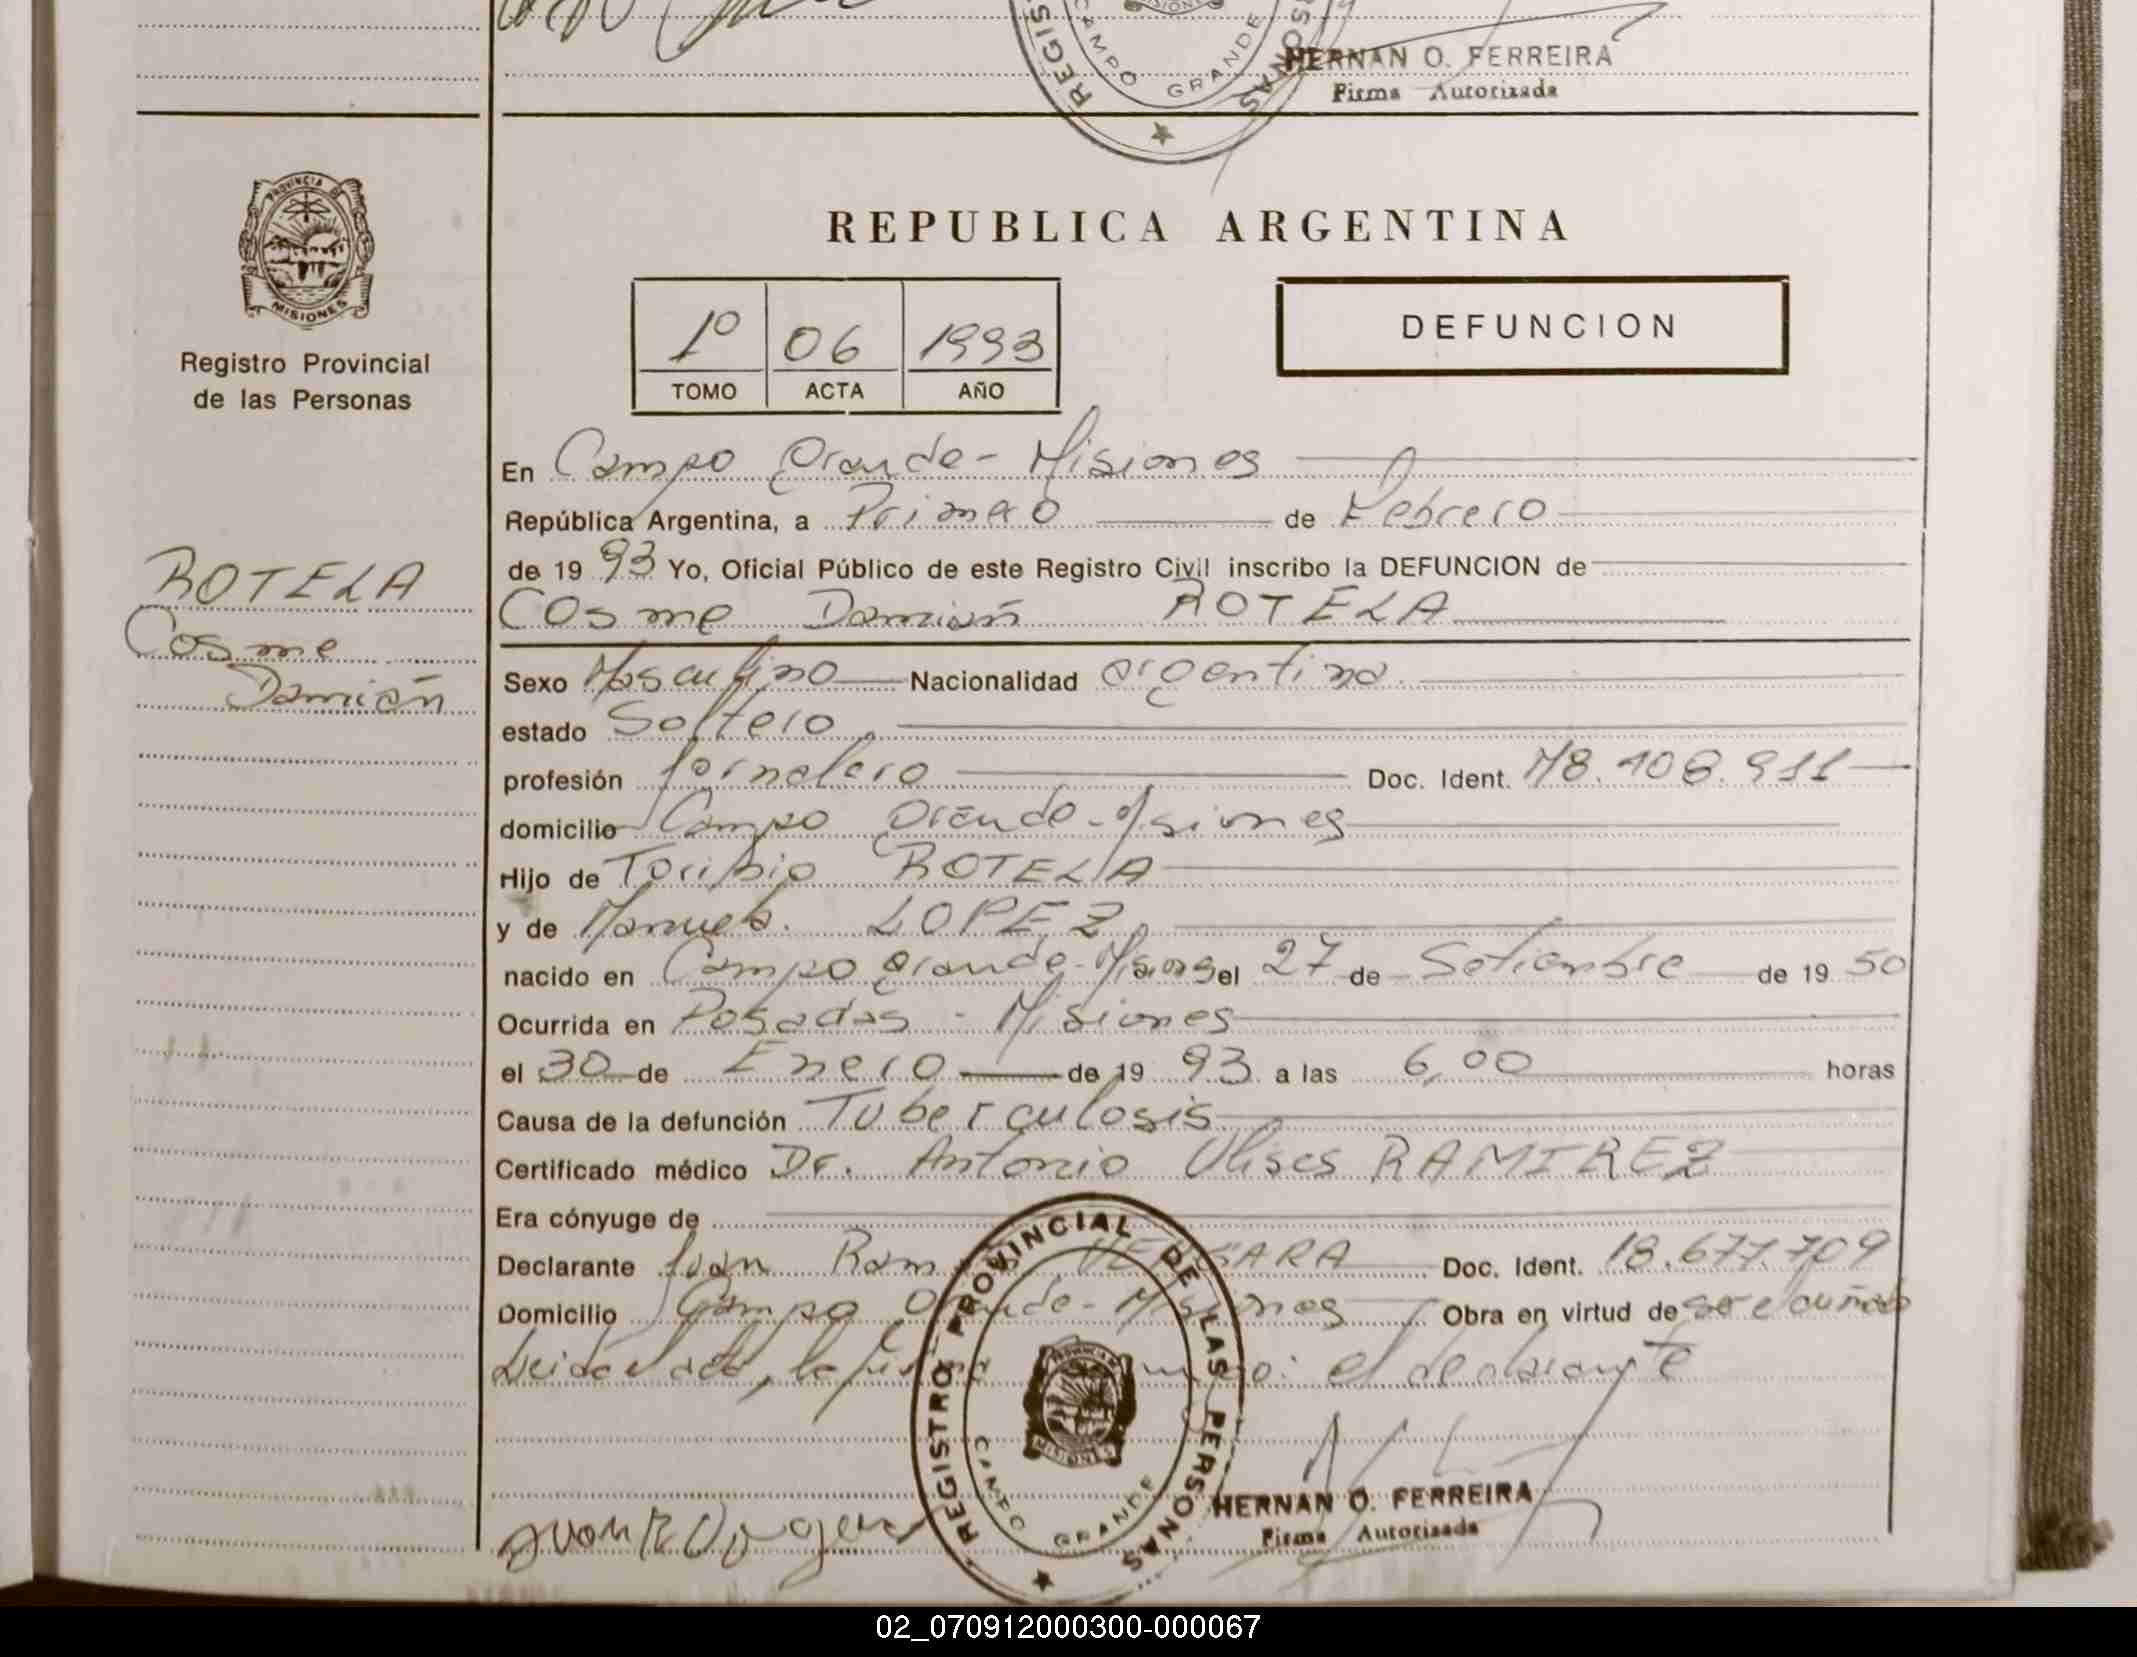 REGIS
CAMPO GRANDE
HERNAN O. FERREIRA
Firma Autorizada
PROVINCIA DE
MISIONES
Registro Provincial
de las Personas
REPUBLICA ARGENTINA
1º 06 1993
TOMO ACTA AÑO
DEFUNCION
ROTELA
Cosme
Damián
En Campo Grande - Misiones
República Argentina, a Primero de Febrero
de 19 93 Yo, Oficial Público de este Registro Civil inscribo la DEFUNCION de
Cosme Damián ROTELA
Sexo Masculino Nacionalidad argentina
estado Soltero
profesión Jornalero Doc. Ident. M8.408.911
domicilio Campo Grande - Misiones
Hijo de Toribio ROTELA
y de Manuela LOPEZ
nacido en Campo Grande - Misiones el 27 de Setiembre de 19 50
Ocurrida en Posadas - Misiones
el 30 de Enero de 19 93 a las 6,00 horas
Causa de la defunción Tuberculosis
Certificado médico Dr. Antonio Ulises RAMIREZ
Era cónyuge de
Declarante Juan Ram VERGARA Doc. Ident. 18.677.709
Domicilio Campo Grande - Misiones Obra en virtud de ser cuñado
Leida el acta, la firma el declarante
REGISTRO PROVINCIAL DE LAS PERSONAS
CAMPO GRANDE
MISIONES
HERNAN O. FERREIRA
Firma Autorizada
02_070912000300-000067